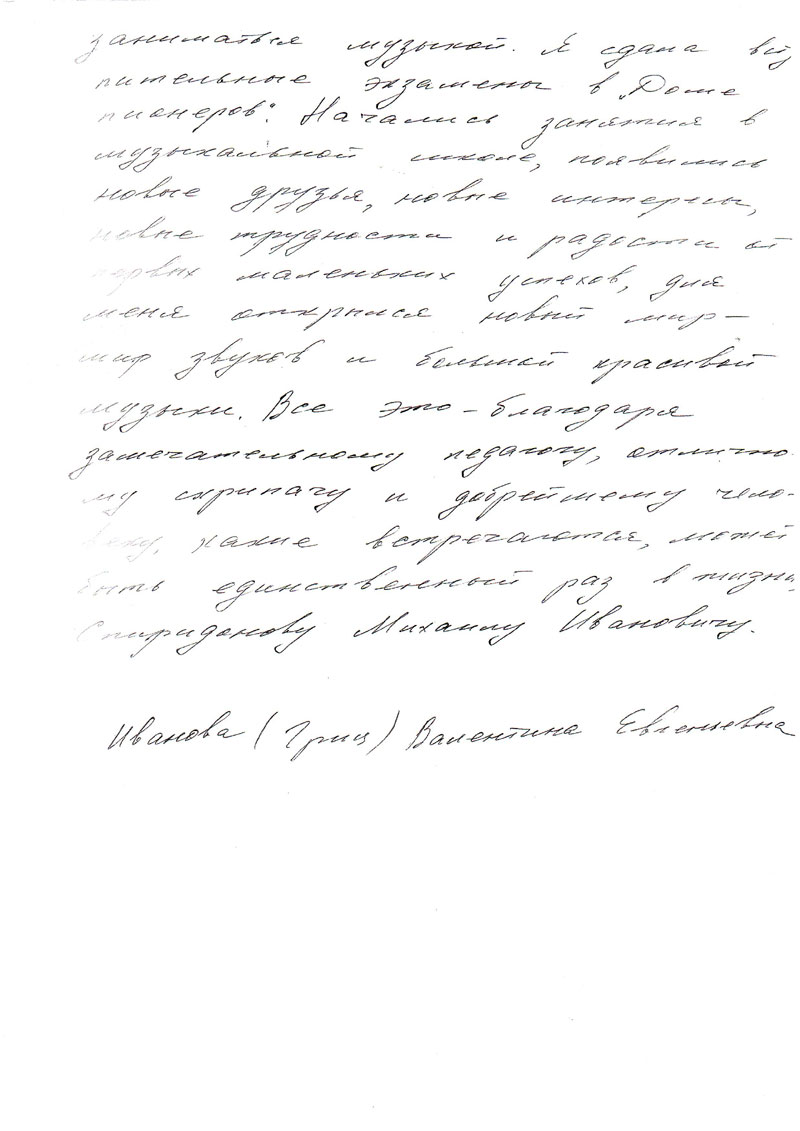 заниматься музыкой. Я сдала всту
пительные экзамены в „Доме
пионеров". Начались занятия в
музыкальной школе, появились
новые друзья, новые интересы,
новые трудности и радости от
первых маленьких успехов, для
меня открылся новый мир –
мир звуков и большой красивой
музыки. Все это – благодаря
замечательному педагогу, отлично-
му скрипачу и добрейшему чело-
веку, какие встречаются, может
быть единственный раз в жизни,
Спиридонову Михаилу Ивановичу.
Иванова (Гриц) Валентина Евгеньевна